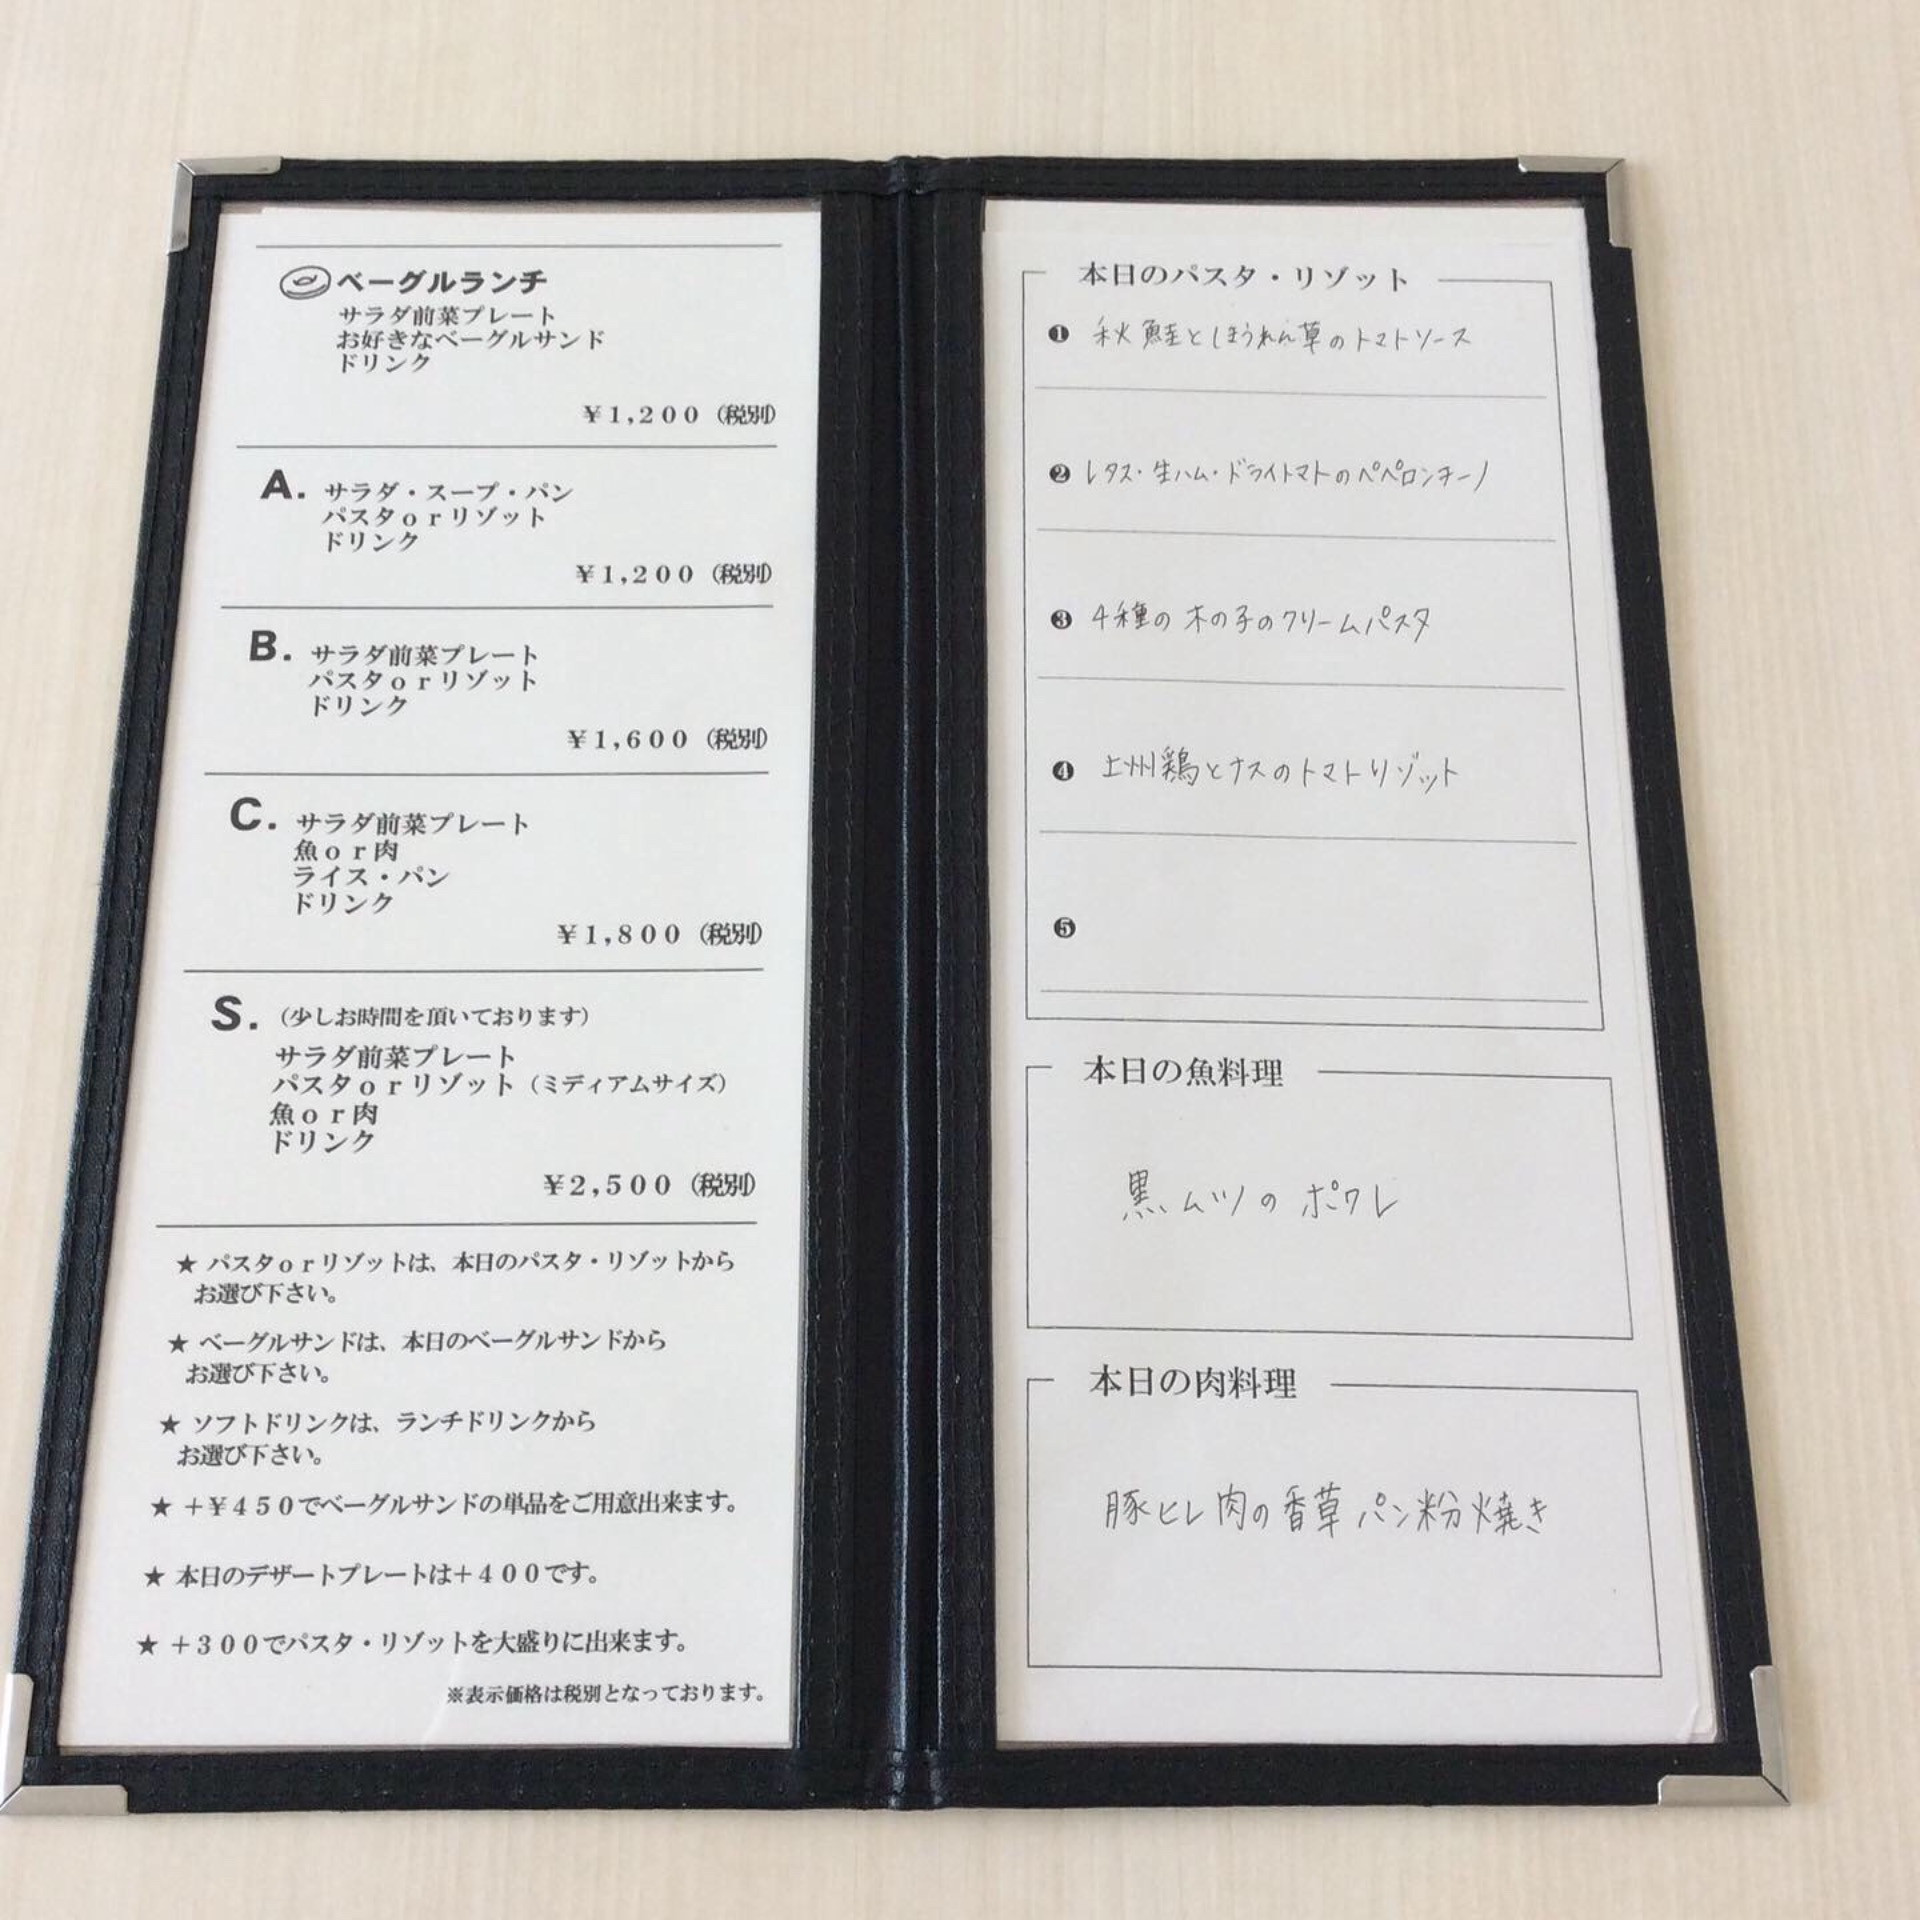 ベーグルランチ
サラダ前菜プレート
お好きなベーグルサンド
ドリンク
¥1,200(税別)
A. サラダ・スープ・パン
パスタorリゾット
ドリンク
¥1,200(税別)
B. サラダ前菜プレート
パスタorリゾット
ドリンク
¥1,600(税別)
C. サラダ前菜プレート
魚or肉
ライス・パン
ドリンク
¥1,800(税別)
S. (少しお時間を頂いております)
サラダ前菜プレート
パスタorリゾット(ミディアムサイズ)
魚or肉
ドリンク
¥2,500(税別)
★ パスタorリゾットは、本日のパスタ・リゾットから
お選び下さい。
★ ベーグルサンドは、本日のベーグルサンドから
お選び下さい。
★ ソフトドリンクは、ランチドリンクから
お選び下さい。
★ +¥450でベーグルサンドの単品をご用意出来ます。
★ 本日のデザートプレートは+400です。
★ +300でパスタ・リゾットを大盛りに出来ます。
※表示価格は税別となっております。
本日のパスタ・リゾット
❶ 秋鮭とほうれん草のトマトソース
❷ レタス・生ハム・ドライトマトのペペロンチーノ
❸ 4種の木の子のクリームパスタ
❹ 上州鶏とナスのトマトリゾット
❺
本日の魚料理
黒ムツのポワレ
本日の肉料理
豚ヒレ肉の香草パン粉焼き